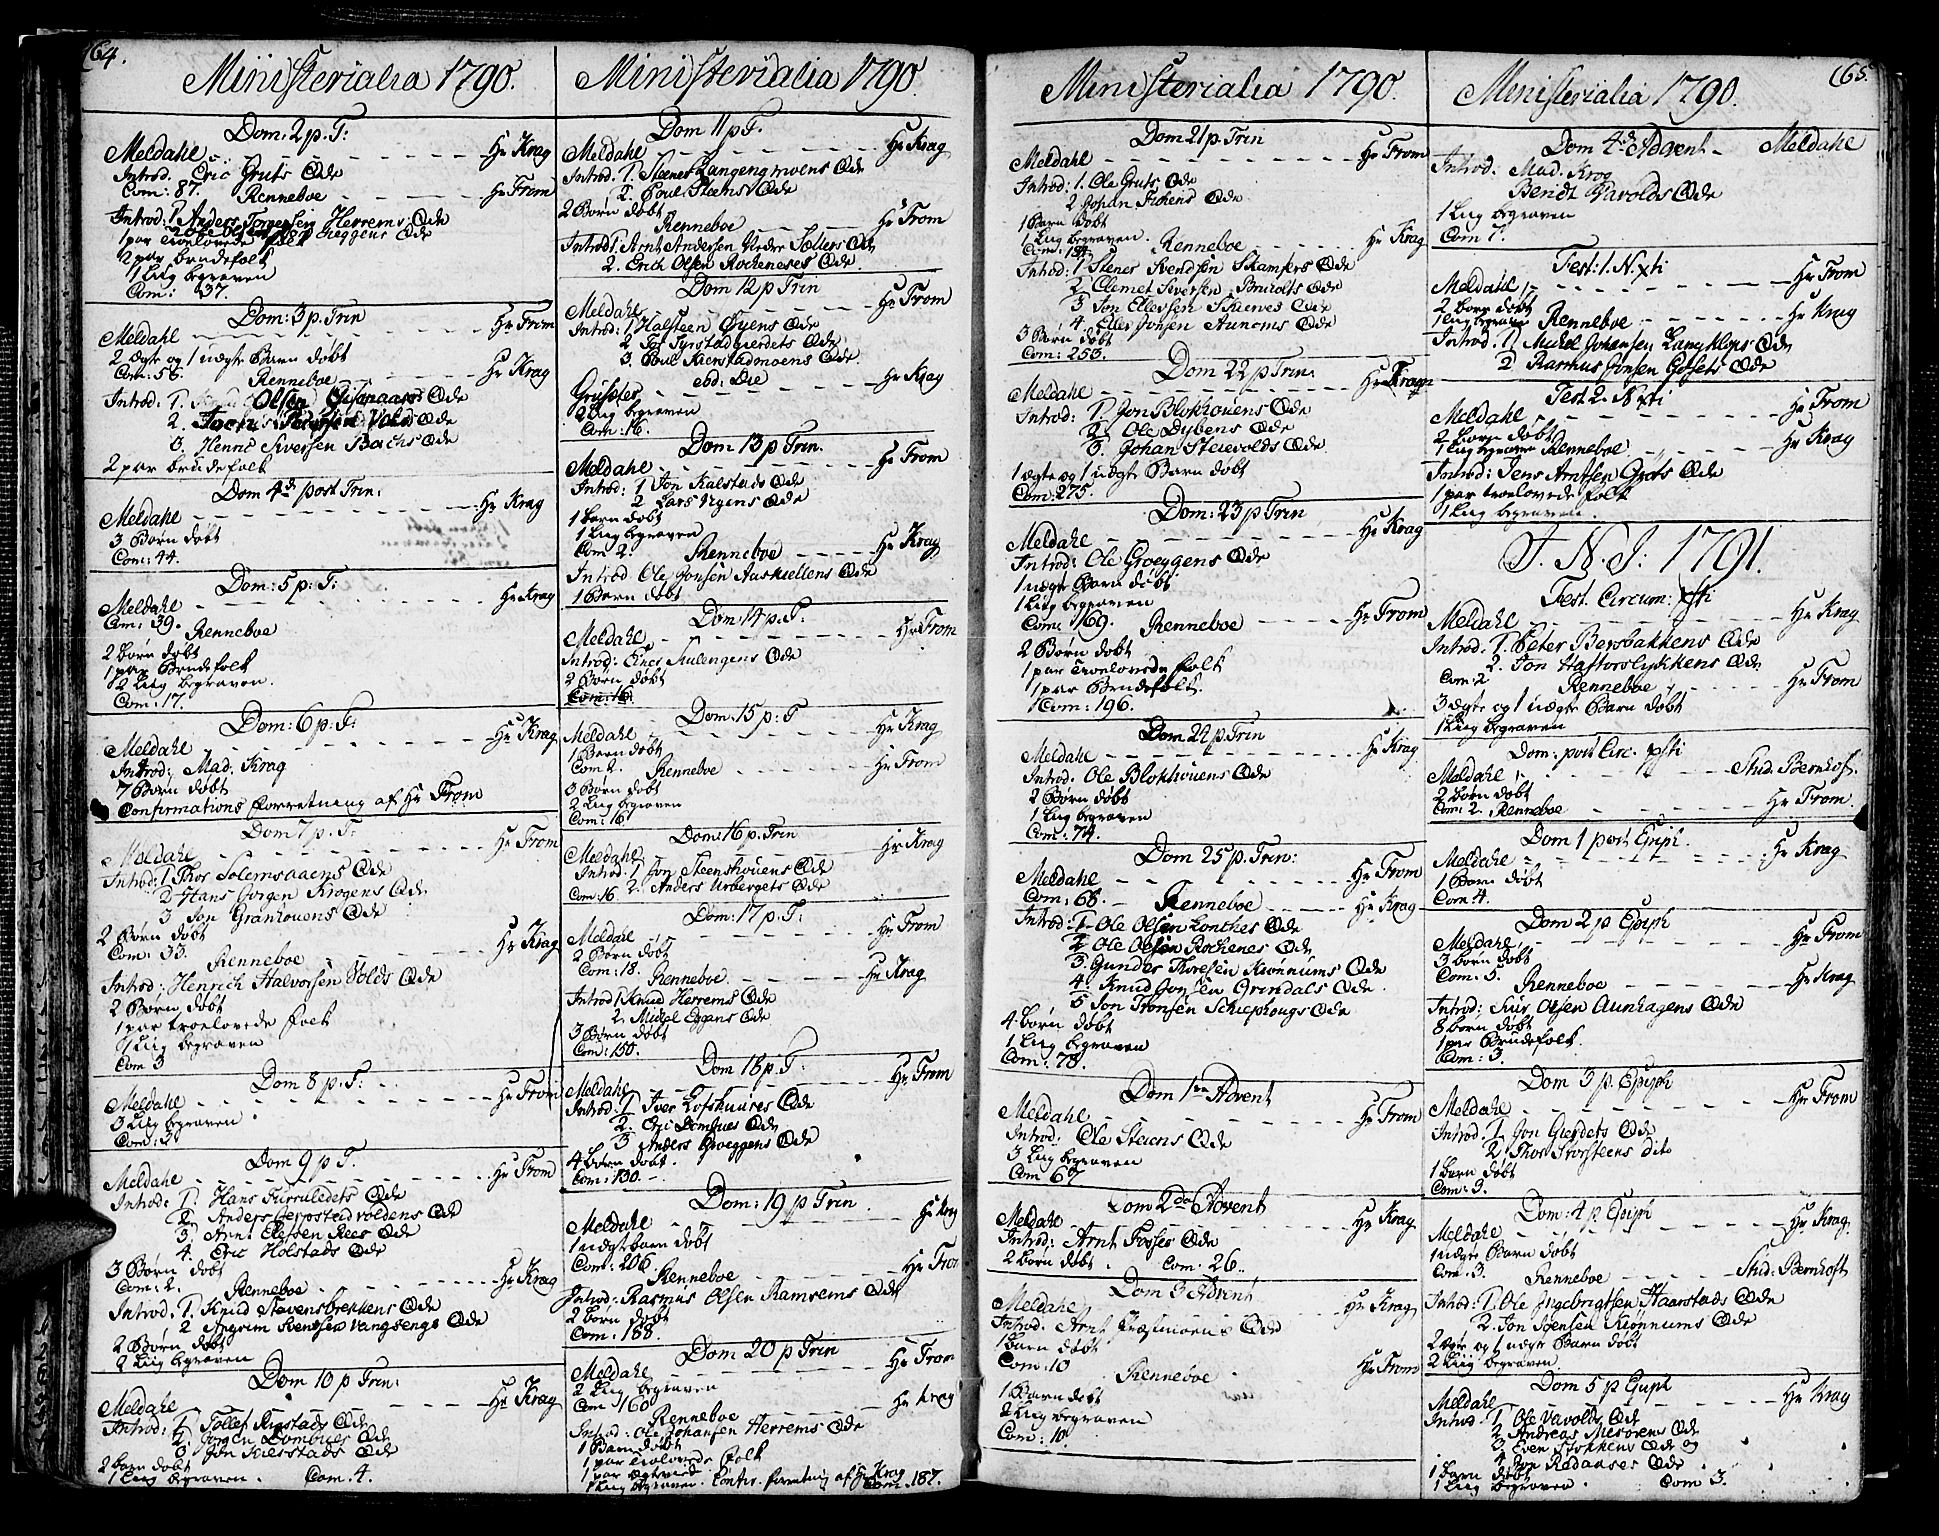 164.
Ministerialia 1790.
Dom: 2 p. T:
Meldahl - - - Hr Krag
Introd. Eric Gruts Qde
Com: 87. Renneboe - - - Hr From
Introd: 1 Anders Torgersen Herrems Qde
1 par troelovede folk
2 par brudefolk
1 Liig begraven
Com: 37.
Dom: 3 p. Trin
Meldahl - - - Hr From
2 ægte og 1 uægte Barn døbt
Com: 58.
Renneboe - - - Hr Krag
Introd: 1. Olsen Qde
2. Qde
3. Henric Siversen Bachs Qde
2 par brudefolk
Dom 4de post Trin:
Meldahl - - - Hr Krag
3 Børn døbt
Com: 44.
Dom: 5 p: T:
Meldahl - - - Hr Krag
Com: 39.
Renneboe
2 børn døbt
1 par Brudefolk
2 Liig begraven.
Com: 17.
Dom: 6 p: T:
Meldahl - - - Hr Krag
Introd: Mad. Krag
7 Børn døbt
Confirmations forretning af Hr From
Dom 7 p: T:
Meldahl - - - Hr From
Introd: 1 Thos Solemsaaens Qde
2 Hans Jørgen Krogens Qde
3 Jon Granhouens Qde
2 Børn døbt
Com: 33.
Renneboe - - - Hr Krag
Introd: Henrich Halvorsen Volds Qde
2 Børn døbt
1 par troelovede folk
1 Liig begraven
Com 3
Dom 8 p: T:
Meldahl - - - Hr From
3 Liig begraven
Com: 3.
Dom 9 p T.
Meldahl - - - Hr From
Introd: 1. Hans Furruledets Qde
2. Anders Jeppstadvoldens Qde
3. Arnt Elefsen Rees Qde
4. Eric Holstads Qde
3 Børn døbt
Com: 2. Renneboe - - - Hr Krag
Introd: 1. Knud Stevensbrekkens Qde
2 Angrim Svendsen Vangsengs Qde
2 Børn døbt
2 Liig begraven
Dom 10 p Trin:
Meldahl - - - Hr Krag
Introd: 1. Tollef Rigstads Qde
2. Jørgen Dombues Qde
3. Jon Kierstads Qde
2 børn døbt
1 Liig begraven. Com: 4.
Ministerialia 1790.
Dom 11 p T.
Meldahl - - - Hr Krag
Introd: 1. Steener Langengmoens Qde
2. Poul Steens Qde
2 Børn døbt
Renneboe - - - Hr From
Introd 1. Arnt Andersen Nedre Sæters Qde
2. Erich Olsen Rocheneses Qde
Dom 12 p Trin
Meldahl - - - Hr From
Introd: 1 Halsteen Øyens Qde
2 Jon Tyrstadgierdets Qde
3. Poul Kierstadmoens Qde
eod: Die
Grufstes - - - Hr Krag
2 Liig begraven
Com: 16.
Dom: 13 p Trin.
Meldahl - - - Hr From
Introd: 1 Jon Kalstads Qde
2 Lars Nyens Qde
1 barn døbt
1 Liig begraven
Com 2. Renneboe - - - Hr Krag
Introd Ole Jonsen Aaskiellens Qde
1 Barn døbt
Dom 14 p: T:
Meldahl - - - Hr From
Introd: Ener Stulengens Qde
2 Børn døbt
Com: 16.
Dom: 15 p: T
Meldahl - - - Hr Krag
1 Barn døbt
Com 2. Renneboe - - - Hr From
3 Børn døbt
2 Liig begraven
Com: 16.
Dom: 16 p. Trin
Meldahl - - - Hr Krag
Introd: 1 Jon Steenshouens Qde
Com: 16 2. Anders Urbergets Qde
Dom: 17 p: T:
Meldahl - - - Hr From
2 Børn døbt
Com: 18. Renneboe - - - Hr Krag
Introd 1 Knud Herrems Qde
2. Michel Eggans Qde
3 Børn døbt
Com: 150.
Dom 18 p: T:
Meldahl - - - Hr From
Introd: 1. Iver Lofshuures Qde
2. Ole Dombues Qde
3 Anders Groeggens Qde
4 børn døbt.
Com: 130.
Dom: 19 p Trin
Meldahl - - - Hr Krag
1 uægt barn døbt
Com: 206.
Renneboe - - - Hr From
Introd: Rasmus Olsen Ramsems Qde
2 børn døbt
Com: 188.
Dom 20 p Trin
Meldahl - - - Hr From
2 Liig begraven
Com 160
Renneboe - - - Hr Krag
Introd: Ole Johansen Herrems Qde
1 Barn døbt
1 par Troelovede folk
1 par ægteviede
1 Liig begraven. Confir: forretning af Hr Krag
Com: 187.
Ministerialia 1790.
Dom 21 p. Trin
Meldahl - - - Hr From
Introd: 1. Ole Gruts Qde
2 Johan Fiskens Qde
1 Barn døbt
1 Liig begraven. Renneboe - - - Hr Krag
Introd: 1 Stener Svendsen Skamfers Qde
2 Clemet Siversen Brudts Qde
3 Jon Ellevsen Skienes Qde
4. Ellev Jonsen Aunems Qde
3 Børn døbt
Com: 253.
Dom 22 p Trin.
Meldahl - - - Hr Krag
Introd: 1. Jon Blokhouens Qde
2. Ole Dybens Qde
3. Johan Steievolds Qde
1 ægte og 1 uægte Barn døbt
Com: 275.
Dom: 23 p Trin
Meldahl - - - Hr Krag
Introd: Ole Groeggens Qde
1 uægte Barn døbt
1 Liig begraven
Com: 169. Renneboe - - - Hr From
2 Børn døbt
1 par Troelovede folk
1 par Brudefolk.
Com: 196.
Dom 22 p Trin
Meldahl - - - Hr Krag
Introd. Ole Blokhouens Qde
2 Børn døbt
1 Liig begraven
Com: 74.
Dom 25 p. Trin:
Meldahl - - - Hr From
Com: 68. Renneboe - - - Hr Krag
Introd: 1. Ole Olsen Lonthes Qde
2 Ole Olsen Rochenes Qde
3. Gunder Thoresen Kionnums Qde
4. Knud Jonsen Grindals Qde
5 Jon Tronsen Schiephougs Qde
4 børn døbt
1 Liig begraven
Com: 78.
Dom 1ste Advent
Meldahl - - - Hr From
Introd: Ole Steiens Qde
3 Liig begraven
Com 67
Dom 2de Advent
Meldahl - - - Hr Krag
Introd: Arnt Fosses Qde
2 børn døbt. Com: 26.
Dom 3 Advent
Meldahl - - - Hr Krag
Introd: Arnt Præstmoens Qde
1 Barn døbt
Com: 10
Renneboe - - - Hr From
1 Barn døbt
2 Liig begraven
Com: 10.
165.
Ministerialia 1790.
Dom 4de Advent - Meldahl
Introd: Mad. Krog
Bendt Vavolds Qde
1 Liig begraven
Com 7.
Fest: 1. N. Xti
Meldahl - - - Hr From
2 børn døbt
1 Liig begraven Renneboe - - - Hr Krag
Introd: 1. Michel Johansen Langklops Qde
2. Rasmus Jonsen Gisets Qde
Fest 2. N Xti
Meldahl - - - Hr From
2 børn døbt
1 Liig begraven Renneboe - - - Hr Krag
Introd: Jens Arntsen Gruts Qde
1 par troelovede folk
1 Liig begraven.
I. N. J: 1791.
Fest. Circum: Xsti
Meldahl - - - Hr Krag
Introd: 1. Peter Bersbakkens Qde
2. Jon Haftorslykkens Qde
Com: 2
Renneboe - - - Hr From
3 ægte og 1 uægte Barn døbt
1 Liig begraven
Dom: post Circ. Xsti
Meldahl - - - Stud. Bernhoft.
2 børn døbt
Com: 2. Renneboe - - - Hr From.
Dom 1 post Epiph.
Meldahl - - - Hr Krag
1 Barn døbt
Com 4.
Dom 2 p Epiph
Meldahl - - - Hr From
3 børn døbt
Com: 5. Renneboe - - - Hr Krag
Introd: Siur Olsen Aunhagens Qde
8 børn døbt
1 par Brudefolk.
Com: 3.
Dom 3 p. Epiph
Meldahl - - - Hr From
Introd: 1. Jon Gierdets Qde
2 Thor Storsteens dito
1 barn døbt
Com: 3.
Dom: 4 p Epiph
Meldahl - - - Hr Krag
1 uægte Barn døbt
Com: 3. Renneboe - - - Stud: Bernhoft
Introd: 1. Ole Ingebrigtsen Haarstads Qde
2. Jon Joensen Kionnums Qde
2 ægte og 1 uægte Barn døbt
2 Liig begraven.
Dom 5 p Epiph
Meldahl - - - Hr Krag
Introd: 1. Ole Vavolds Qde
2. Andreas Mesørens Qde
3 Even Stokkens Qde og
4 Jon Rødaases Qde
1 barn døbt
1 Liig begraven. Com 3.